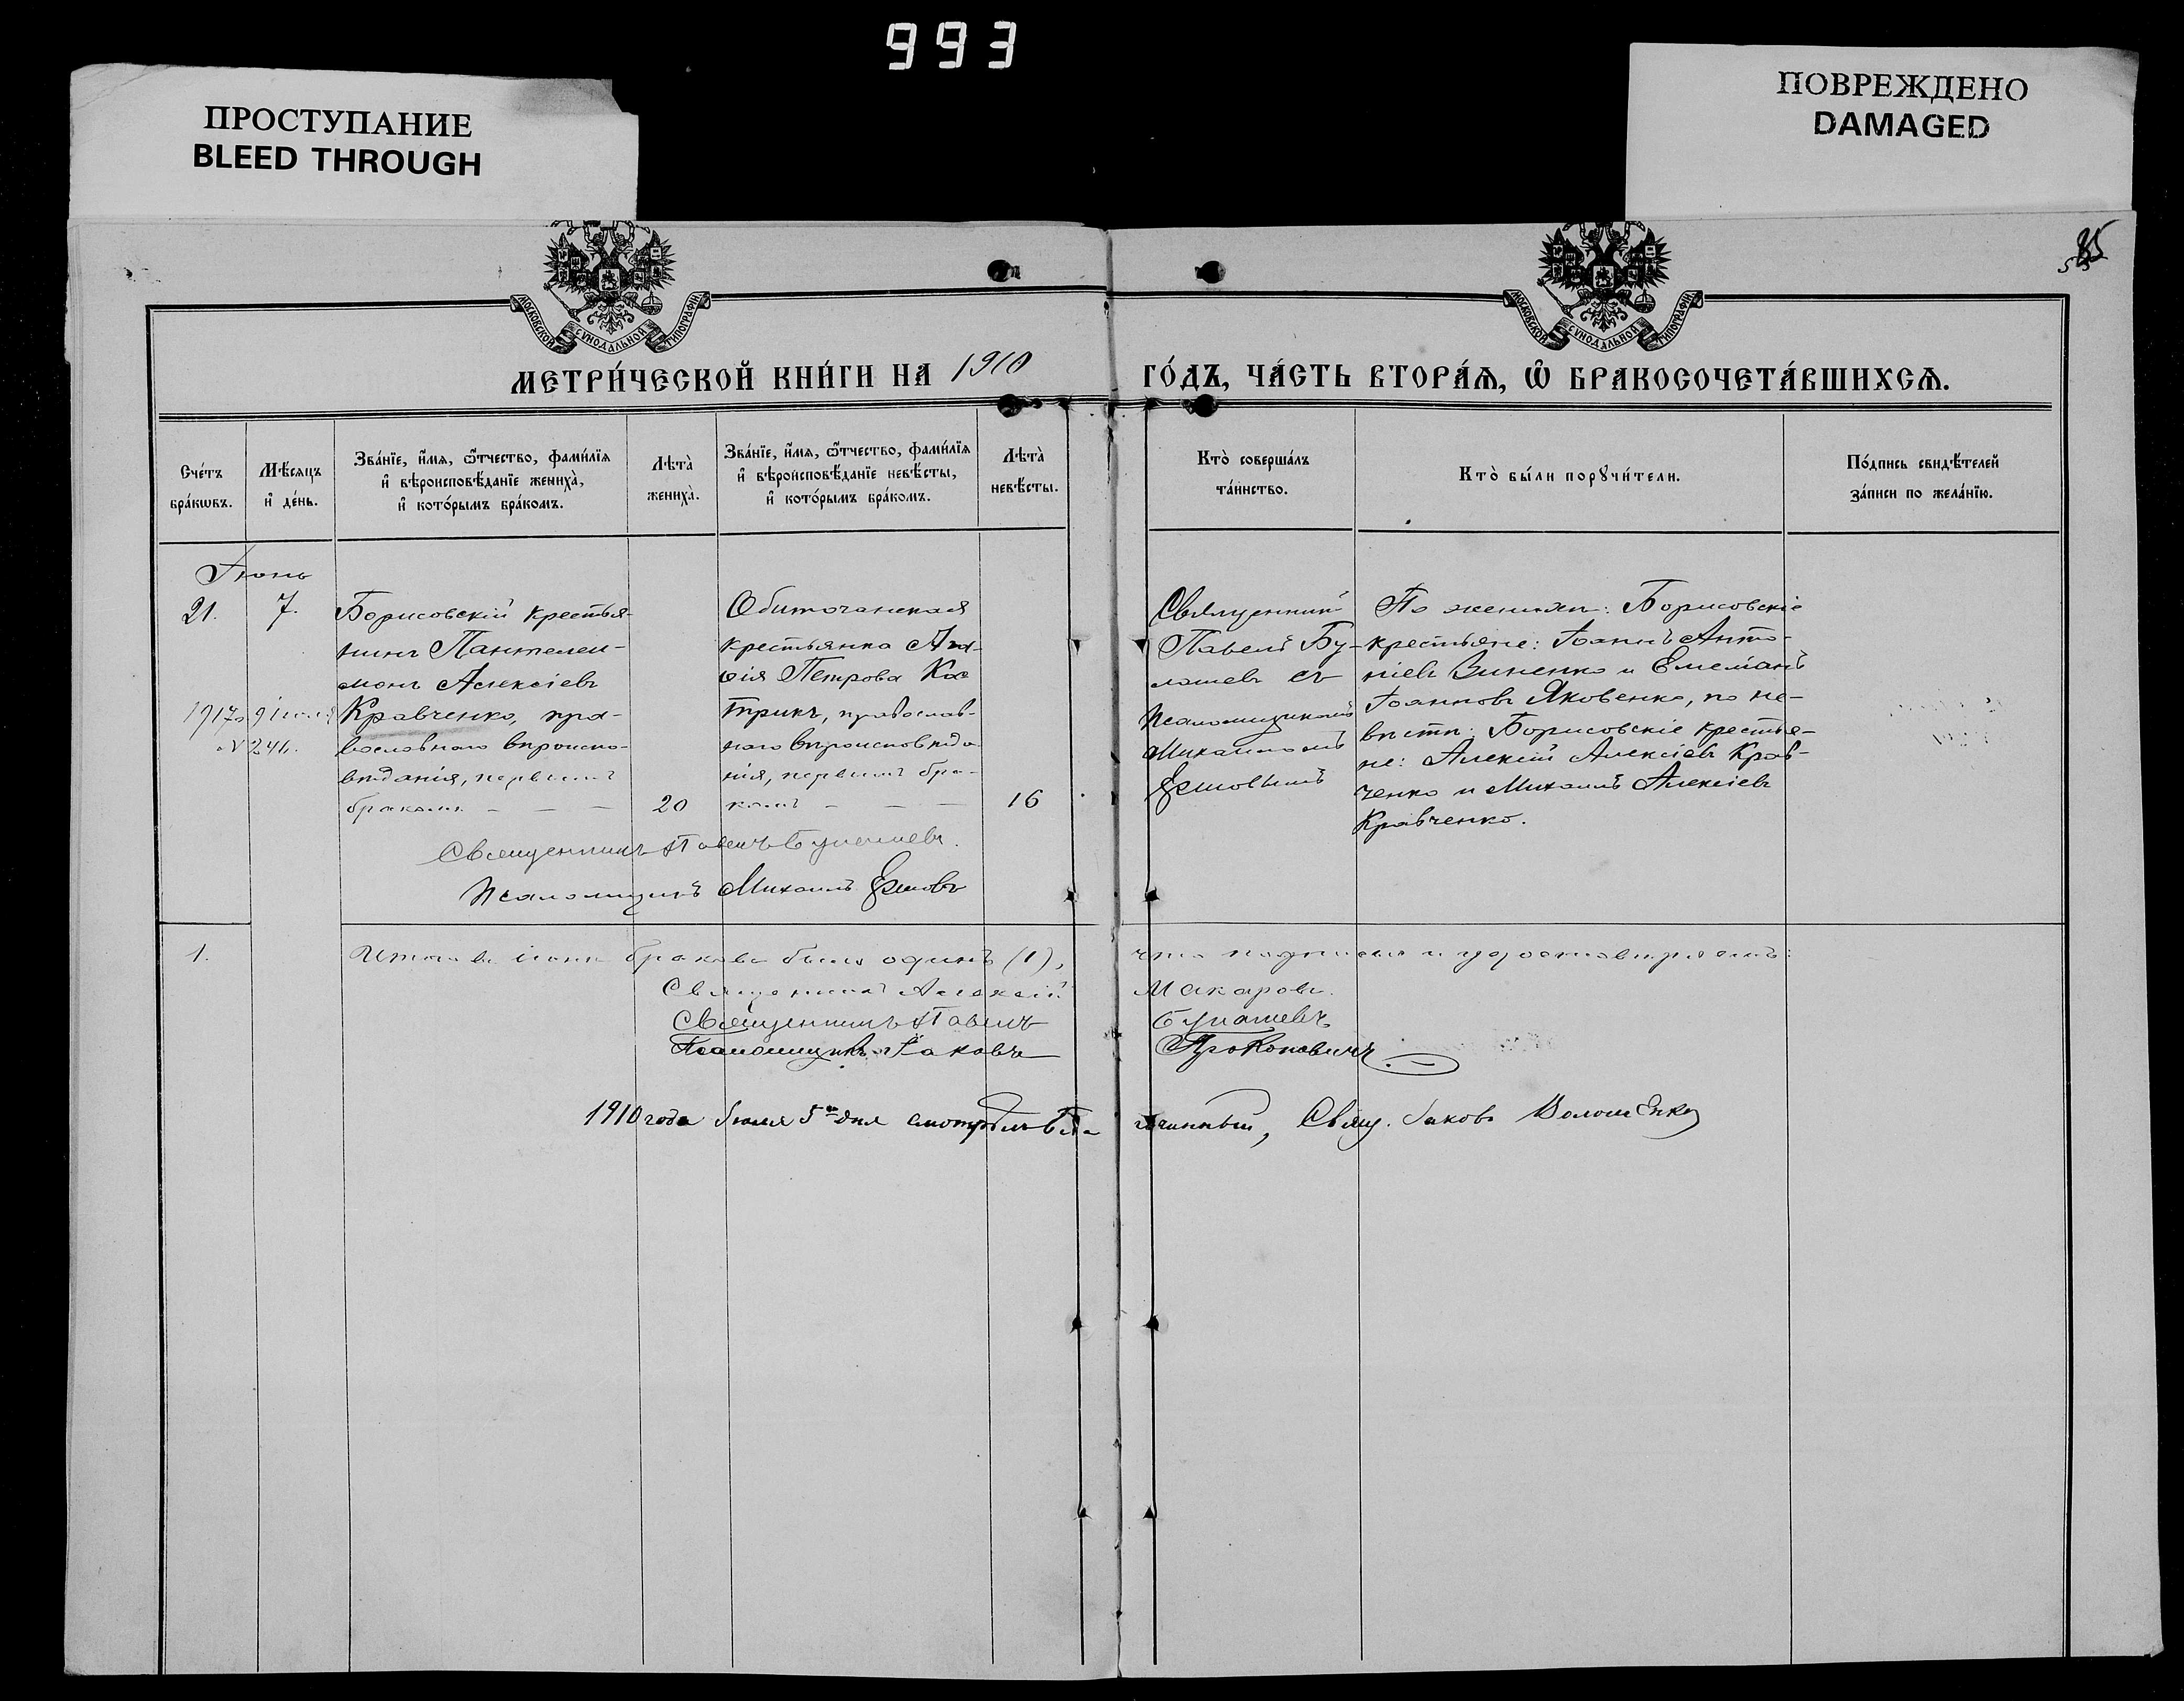 993
ПРОСТУПАНИЕ
BLEED THROUGH
ПОВРЕЖДЕНО
DAMAGED
МОСКОВСКОЙ СѴНОДАЛЬНОЙ ТИПОГРАФІИ
МОСКОВСКОЙ СѴНОДАЛЬНОЙ ТИПОГРАФІИ
МЕТРИ́ЧЕСКОЙ КНИ́ГИ НА 1910 ГО́ДЪ, ЧА́СТЬ ВТОРА́Ѧ, Ѽ БРАКОСОЧЕТА́ВШИХСѦ.
Сче́тъ бра́кѡвъ.
Мѣ́сяцъ и҆ де́нь.
Зва́нїе, и҆́мѧ, ѻ҆́тчество, фами́лїѧ и҆ вѣроисповѣ́данїе жениха̀, и҆ кото́рымъ бра́комъ.
Лѣта̀ жениха̀.
Зва́нїе, и҆́мѧ, ѻ҆́тчество, фами́лїѧ и҆ вѣроисповѣ́данїе невѣ́сты, и҆ кото́рымъ бра́комъ.
Лѣта̀ невѣ́сты.
Кто̀ соверша́лъ та́инство.
Кто̀ бы́ли порꙋчи́тели.
По́дпись свидѣ́телей за́писи по жела́нїю.
Іюнь
21.
7.
Борисовскій крестья-
нинъ Пантелеи-
монъ Алексіевъ
Кравченко, пра-
вославнаго вѣроиспо-
вѣданія, первымъ
бракомъ
20
1917
9 Іюля
№ 241.
Обиточанская
крестьянка
Петрова Ко
трикъ, православ-
наго вѣроисповѣда
нія, первымъ бра-
комъ
16
Священникъ
Павелъ Бу-
лашевъ съ
псаломщикомъ
Михаиломъ
Ершовымъ
По женихѣ: Борисовскіе
крестьяне: Іоаннъ Анто-
ніевъ Зиненко и Емеліанъ
Іоанновъ Яковенко, по не-
вѣстѣ: Борисовскіе крестья-
не: Алексій Алексіевъ Крав-
ченко и Михаилъ Алексіевъ
Кравченко.
Священникъ Павелъ Булашевъ.
Псаломщикъ Михаилъ Ершовъ
1.
Итого въ іюнѣ браковъ былъ одинъ (1), что подписью и удостовѣряемъ:
Священникъ Алексій Макаровъ.
Священникъ Павелъ Булашевъ
Псаломщикъ Іаковъ Прокоповичъ.
1910 года Іюля 5го дня смотрѣлъ Благочинный, Свящ. Іаковъ Волошенко